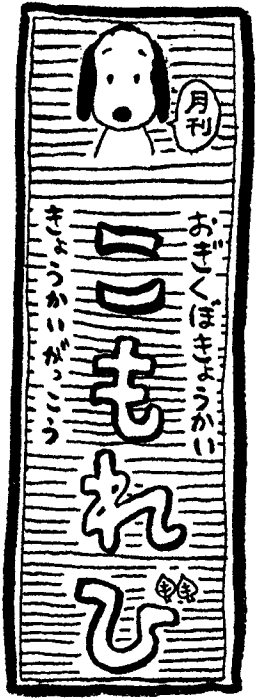 月刊
おぎくぼきょうかい
こもれび
きょうかいがっこう